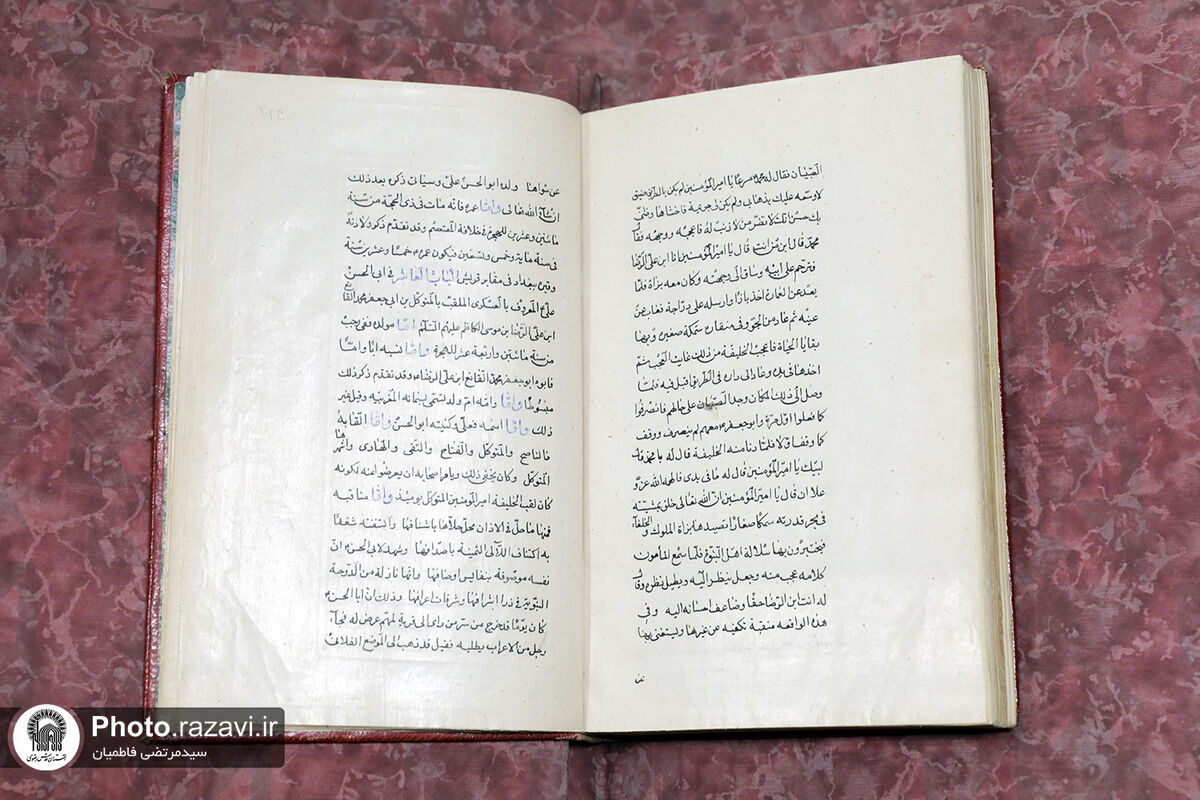 الصبيان فقال له محمد مسرعا يا امير المؤمنين لم يكن بالطريق ضيق
لاوسعه عليك بذهابى ولم يكن لى جريمة فاخشاها وظنى
بك حسن انك لا تضر من لا ذنب له فاعجبه ووجهه فقا
محمد قال ابن من انت قال يا امير المؤمنين انا ابن على الرضا
فترحم على ابيه وساق الى وجهته وكان معه بزاة فلما
بعد عن العمارة اخذ بازا وارسله على دراجة فغاب عن
عينه ثم عاد من الجو وفى منقاره سمكة صغيرة وبها
بقايا الحياة فاعجب الخليفة من ذلك غاية العجب ثم
اخذها فى يده وعاد الى داره فى الطريق اقبل فيه فلما
وصل الى ذلك المكان وجد الصبيان على حالهم فانصرفوا
كما فعلوا اول مرة وابو جعفر معهم لم ينصرف ووقف
كما وقف اولا فلما دنا منه الخليفة قال له يا محمد قال
لبيك يا امير المؤمنين قال له ما فى يدى فالهمه الله عز و
علا ان قال يا امير المؤمنين ان الله تعالى خلق بمشيته
فى بحر قدرته سمكا صغارا تصيدها بزاة الملوك والخلفاء
فيختبرون بها سلالة اهل النبوة فلما سمع المأمون
كلامه عجب منه وجعل ينظر اليه ويطيل نظره وقال
له انت ابن الرضا حقا وضاعف احسانه اليه وفى
هذه الواقعه منقبة تكفيه عن غيرها ويستغنى بها
عن سواها ولده ابو الحسن على وسيأتى ذكره بعد ذلك
ان شاء الله تعالى واما عمره فانه مات فى ذى الحجة من سنة
مائتين وعشرين للهجرة فى خلافة المعتصم وقد تقدم ذكر ولادته
فى سنة ماية وخمس وتسعين فيكون عمره خمسا وعشرين سنة
وقبره ببغداد فى مقابر قريش الباب العاشر فى ابى الحسن
على المعروف بالعسكرى الملقب بالمتوكل بن ابى جعفر محمد القانع
ابن على الرضا بن موسى الكاظم عليهم السلم اما مولده ففى رجب
من سنة مائتين واربعة عشر للهجرة واما نسبه ابا واما
فابوه ابو جعفر محمد القانع ابن على الرضا وقد تقدم ذكر ذلك
مبسوطا واما امه ام ولد تسمى بسمانه المغربيه وقيل غير
ذلك واما اسمه فعلى وكنيته ابو الحسن واما القابه
فالناصح والمتوكل والفتاح والنقى والهادى واشهرها
المتوكل وكان يخفى ذلك ويامر اصحابه ان يعرضوا عنه لكونه
كان لقب الخليفة امير المؤمنين المتوكل يومئذ واما مناقبه
فمنها ما حل فى الاذان محل حلاها باشنافها واكتنفته شغفا
به اكتناف اللآلى الثمينة باصدافها وشهد لابى الحسن ان
نفسه موصوفة بنفايس اوصافها وانها نازلة من الدوحة
النبوية فى ذرا اشرافها وشرفات اعرافها وذلك ان ابا الحسن
كان يوما قد خرج من سر من راى الى قرية لمهم عرض له فجاء
رجل من الاعراب يطلبه فقيل قد ذهب الى الموضع الفلانى
Photo.razavi.ir
سیدمرتضی فاطمیان